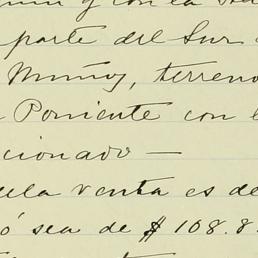 y con la
parte del Sur
Muñoz, terreno
Poniente con
cionado —
la venta es de
ó sea de $ 108.8